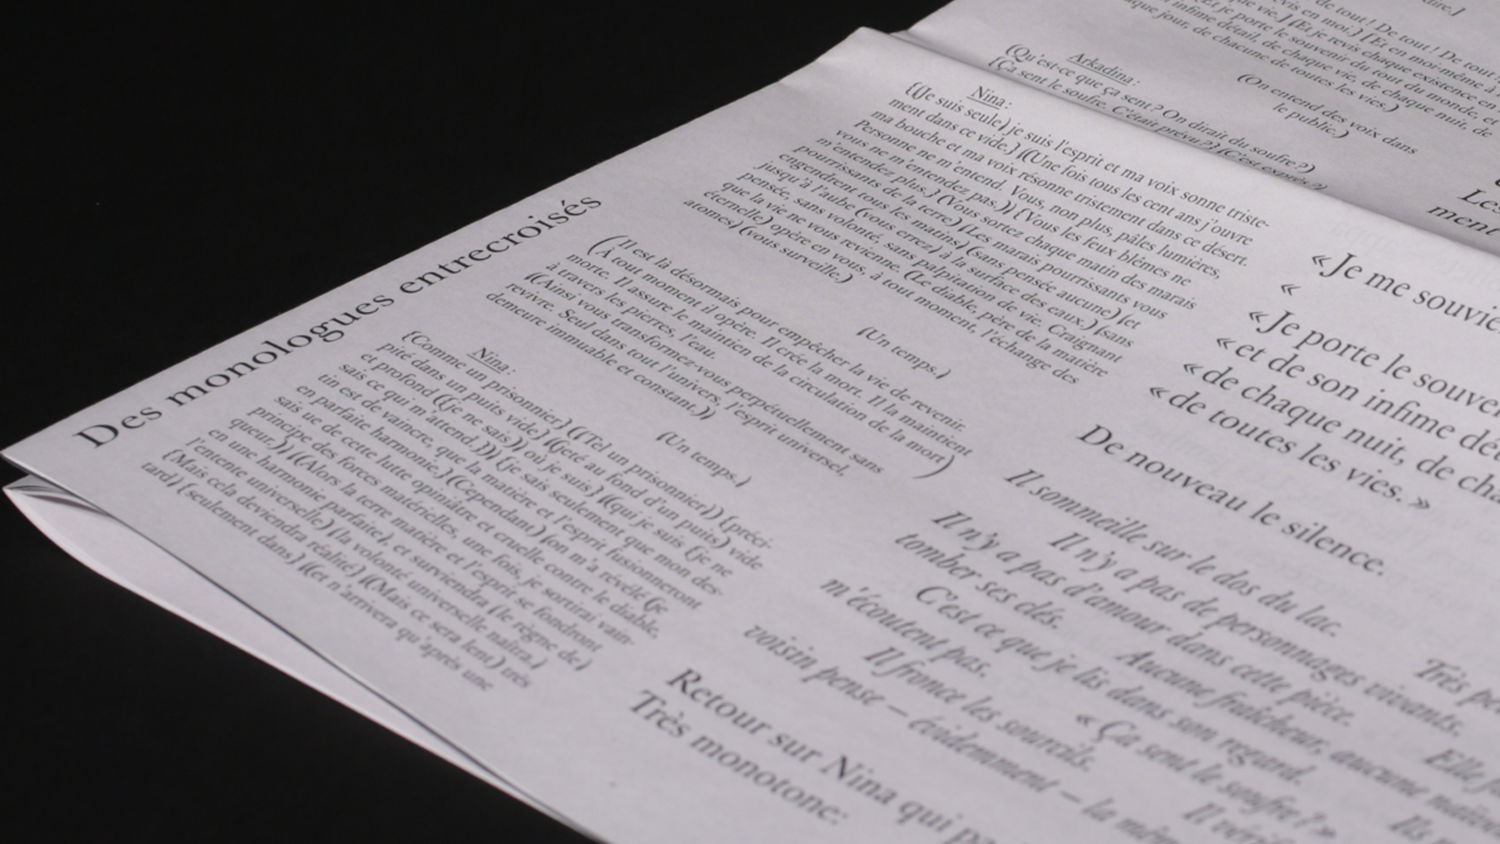 Des monologues entrecroisés
dire.]
de tout ! De tout ! De tout
vis en moi.) [Et je revis chaque existence en
vie.] [Et je porte le souvenir du tout du monde, et
infime détail, de chaque vie, de chaque nuit, de
aque jour, de chacune de toutes les vies.)
(On entend des voix dans
le public.)
Arkadina :
(Qu'est-ce que ça sent ? On dirait du soufre ?)
[Ça sent le soufre. C'était prévu ?] [C'est exprès ?]
Nina :
([Je suis seule) je suis l'esprit et ma voix sonne triste-
ment dans ce vide.] ((Une fois tous les cent ans j'ouvre
ma bouche et ma voix résonne tristement dans ce désert.
Personne ne m'entend. Vous, non plus, pâles lumières,
vous ne m'entendez pas.)) [Vous les feux blêmes ne
m'entendez plus.] (Vous sortez chaque matin des marais
pourrissants de la terre) [Les marais pourrissants vous
engendrent tous les matins] (sans pensée aucune) [et
jusqu'à l'aube (vous errez) à la surface des eaux.] [sans
pensée, sans volonté, sans palpitation de vie. Craignant
que la vie ne vous revienne. (Le diable, père de la matière
éternelle) opère en vous, à tout moment, l'échange des
atomes] (vous surveille.)
(Un temps.)
(Il est là désormais pour empêcher la vie de revenir.
À tout moment il opère. Il crée la mort. Il la maintient
morte. Il assure le maintien de la circulation de la mort)
à travers les pierres, l'eau.
((Ainsi vous transformez-vous perpétuellement sans
revivre. Seul dans tout l'univers, l'esprit universel,
demeure immuable et constant.))
(Un temps.)
Nina :
[Comme un prisonnier] ((Tel un prisonnier)) [préci-
pité dans un puits vide] ((jeté au fond d'un puits) vide
et profond ((je ne sais)) où je suis] ((qui je suis (je ne
sais ce qui m'attend.))) [je sais seulement que mon des-
tin est de vaincre, que la matière et l'esprit fusionneront
en parfaite harmonie.] (Cependant) [on m'a révélé (je
sais que de cette lutte opiniâtre et cruelle contre le diable,
principe des forces matérielles, une fois, je sortirai vain-
queur.)] ((Alors la terre matière et l'esprit se fondront
en une harmonie parfaite), et surviendra (le règne de)
l'entente universelle) [la volonté universelle naîtra.]
[Mais cela deviendra réalité] ((Mais ce sera lent) très
tard) [seulement dans] ((et n'arrivera qu'après une
« Je me souvie
«
« Je porte le souve
« et de son infime dé
« de chaque nuit, de cha
« de toutes les vies. »
De nouveau le silence.
Il sommeille sur le dos du lac.
Il n'y a pas de personnages vivants.
Il n'y a pas d'amour dans cette pièce.
tomber ses clés.
Aucune fraîcheur, aucune
C'est ce que je lis dans son regard.
m'écoutent pas.
« Ça sent le soufre ? »
Il fronce les sourcils.
voisin pense — évidemment — la mê
Retour sur Nina qui
Très monotone:
Le
ment
Très
Elle
Il
Ils